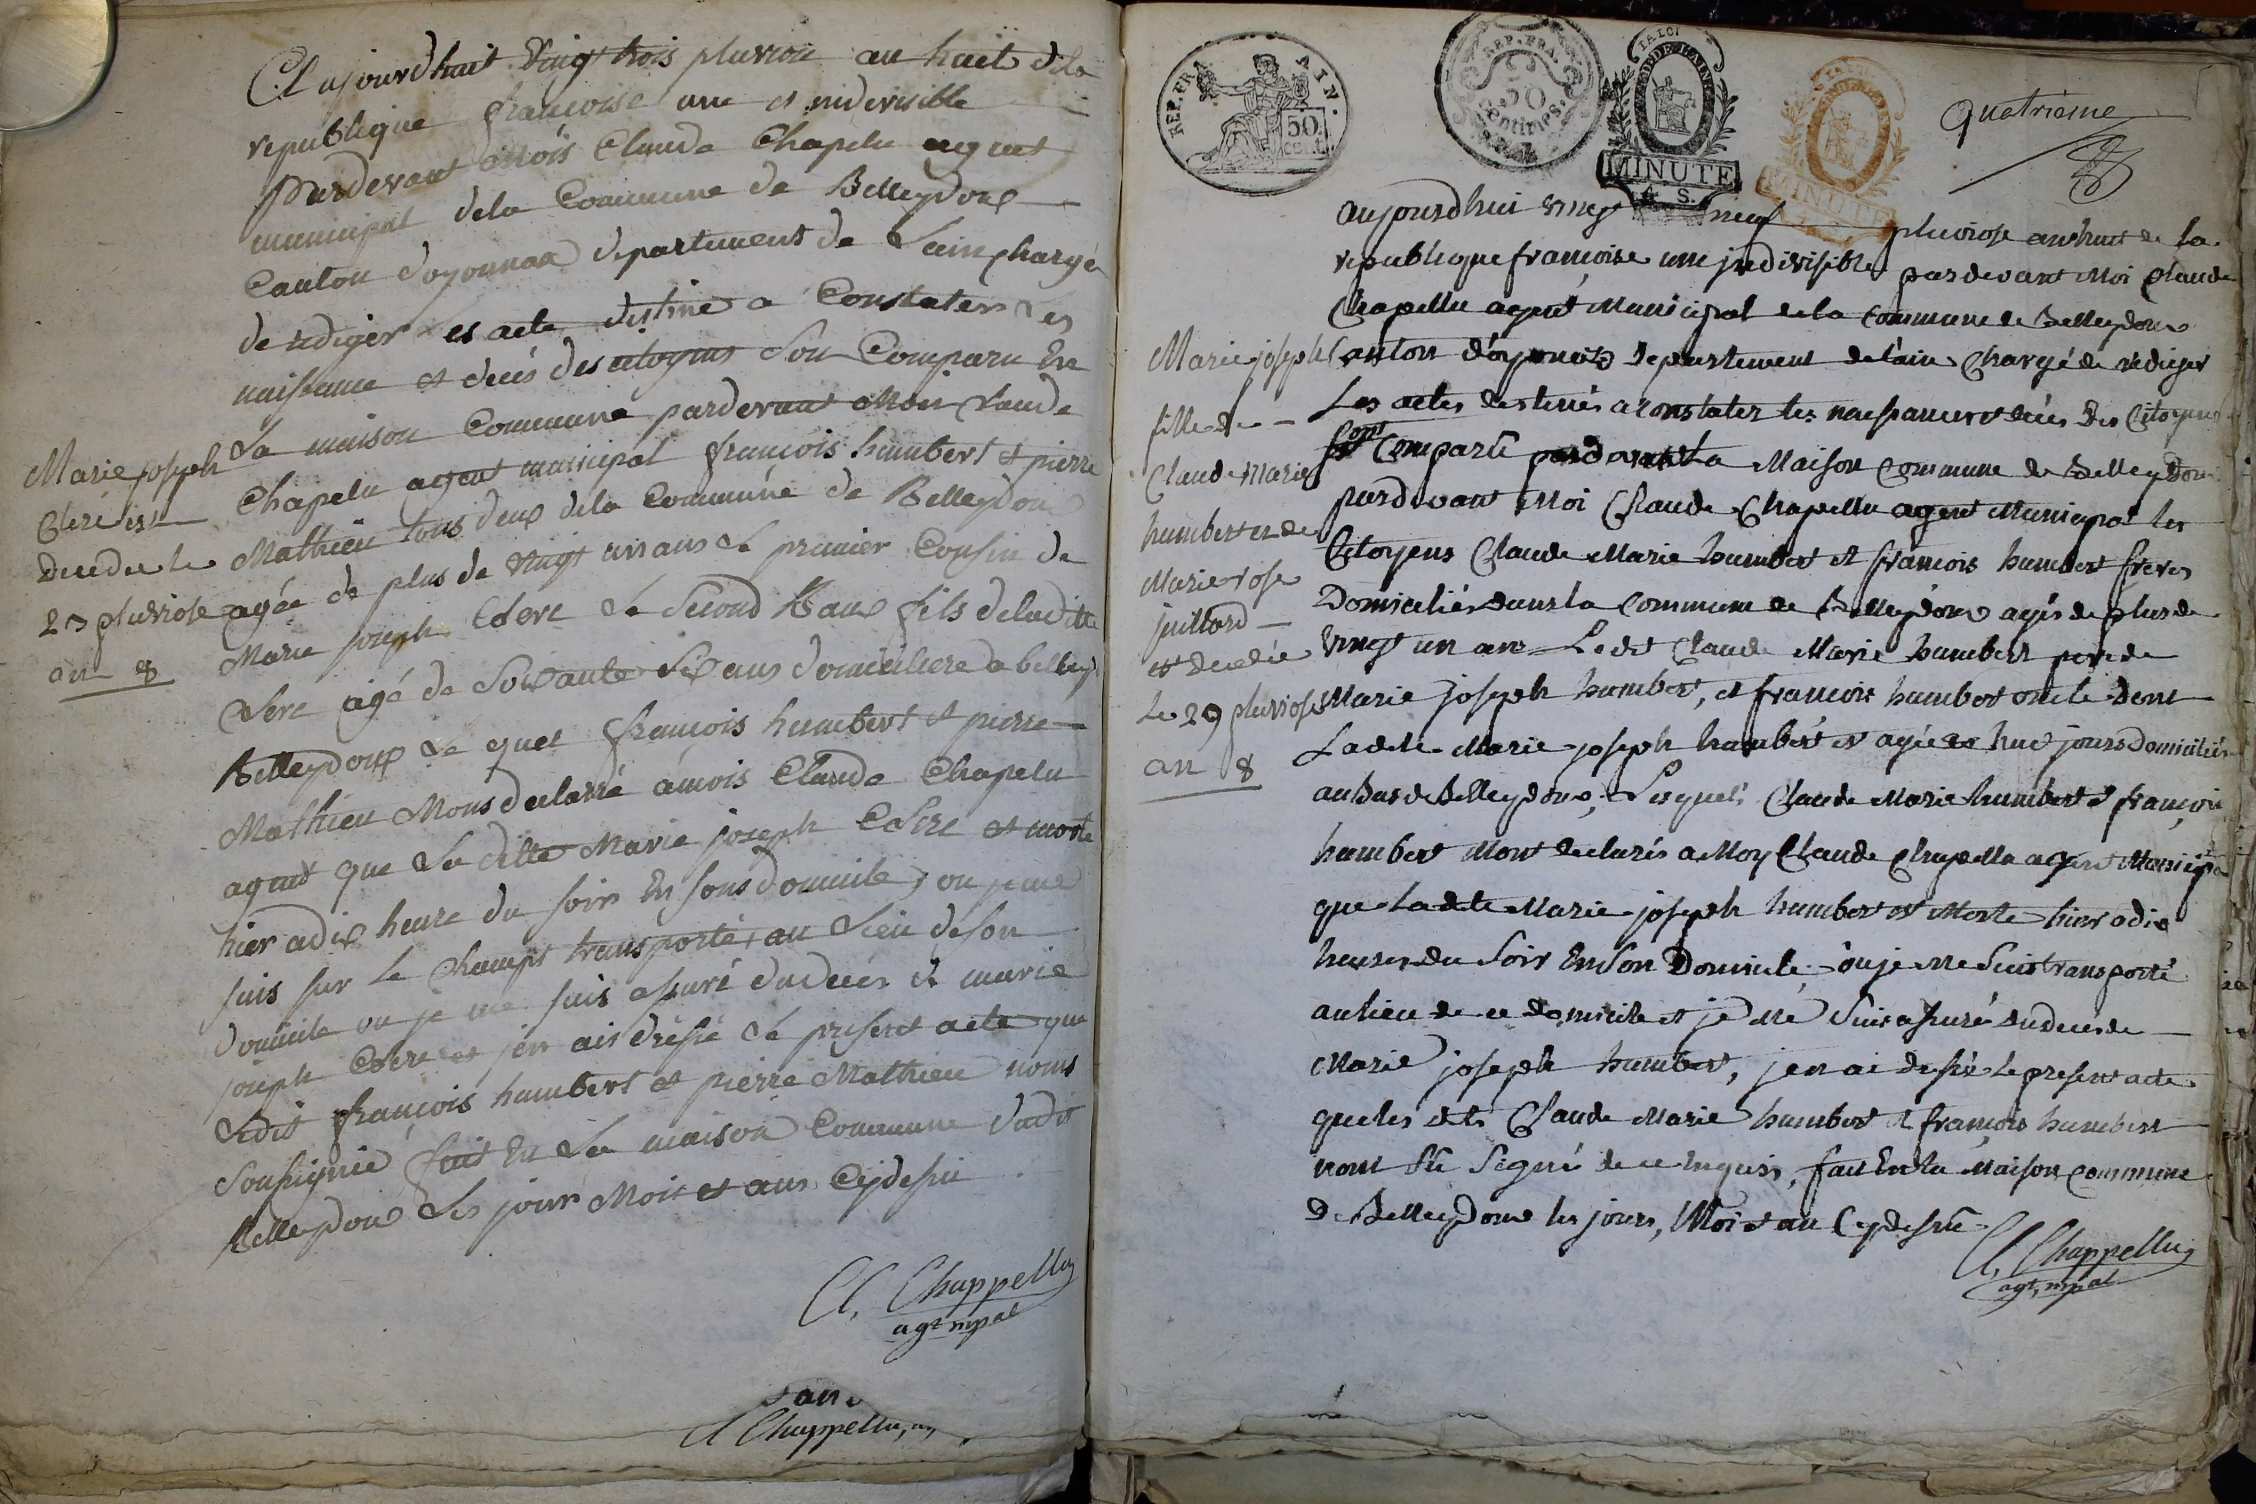 Marie joseph
Clerc est
decedee le
23 pluviose
an 8
Cl aujourdhuit vingt trois pluviose an huit dela
republique françoise une et indivisible
pardevant Mois Claude Chapelu agent
municipal dela Commune de Belleydoux
Canton doyonnax departement de Lain chargé
de rediger les acte destiné a Constater les
naissance et decés des citoyens Son Comparu En
La maison Commune pardevant Moi Claude
Chapelu agent municipal françois humbert et pierre
Mathieu tous deux dela Commune de Belleydoux
agée de plus de vingt un ans Le premier Cousin de
Marie joseph Clerc Le Second Beau fils deladitte
Clerc agé de Soixante Six ans domiciliere a belley
Belleydoux Le quel françois humbert et pierre
Mathieu Mons declarré amois Claude Chapelu
agent que La ditte Marie joseph Clerc et morte
hier adix heure du soir En sons domicile, ou je me
suis sur le Champt transporté, au Lieu deson
domicile ou je me suis assuré du decés de marie
joseph Clerc et jen ais dréssé Le present acte que
Ledit françois humbert et pierre Mathieu nons
Soussignié fait En La maison Commune dudit
Belleydoux Les jour Mois et ans Cydessu
Cl. Chappellu
agt mpal
Cl Chappellu
REP. FRA. AIN.
50
cent.
REP. FRA.
50
Centimes.
LA LOI
MINUTE
4 S.
MINUTE
quatrieme
Marie joseph
fille de
Claude Marie
humbert et de
Marie rose
juillard
est decedée
Le 29 pluviose
an 8
aujourdhui vingt neuf pluviose an huit de la
republique françoise une indivisible pardevant Moi Claude
Chapellu agent Municipal de la Commune de Belleydoux
Canton d'oyonnax departement de l'ain Chargé de rediger
Les actes destinés a constater les naissances et decés des Citoyens
sont Comparu La Maison Commune de Belleydoux
pardevant Moi Claude Chapellu agent Municipal les
Citoyens Claude Marie humbert et françois humbert freres
Domiciliés dans la Commune de Belleydoux agés de plus de
vingt un ans Le dit Claude Marie humbert pere de
Marie joseph humbert, et françois humbert oncle dont
Ladite Marie joseph humbert est agée de huit jours domiciliés
au bas de Belleydoux, Lesquels Claude Marie humbert et françois
humbert Mont declarés a Moy Claude Chapellu agent Municipal
que Ladite Marie joseph humbert est Morte hier a dix
heures du Soir En Son Domicile, ou je me Suis transporté
au lieu de ce domicile et je me Suis assuré du deces de
Marie joseph humbert, jen ai dressé le present acte
que les dits Claude Marie humbert et françois humbert
nont Sü Signé de ce Enquis, fait En la Maison commune
De Belleydoux les jours, Mois et an Cydessu
Cl. Chappellu
agt, mpal